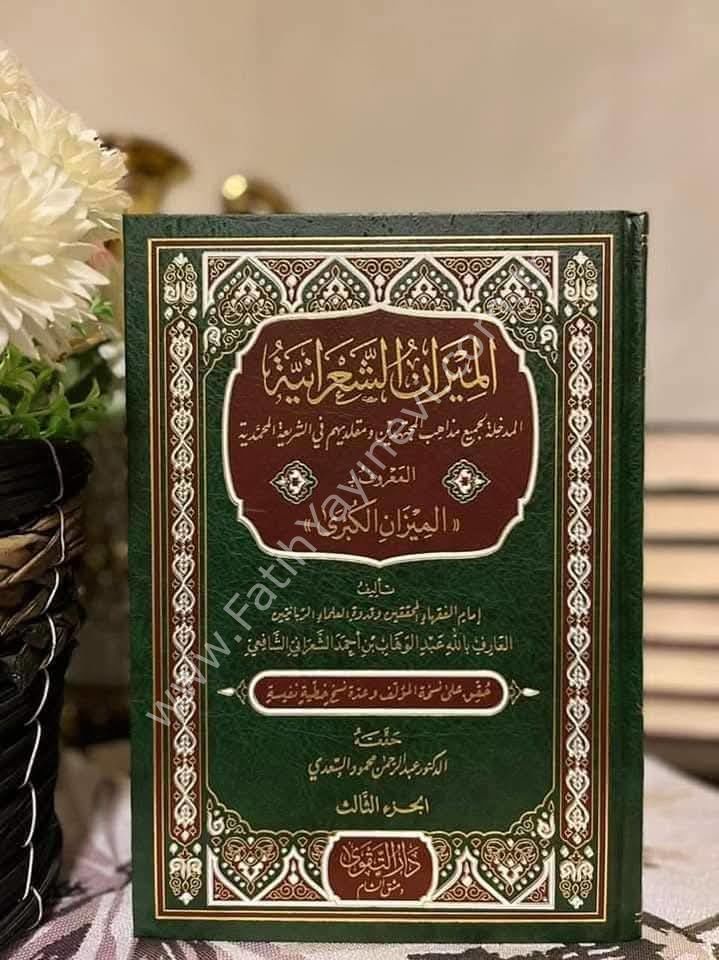 الميزان الشعرانية
المدخلة لجميع مذاهب المجتهدين ومقلديهم في الشريعة المحمدية
المعروف بـ
«الميزان الكبرى»
تأليف
إمام الفقهاء المحققين وقدوة العلماء الربانيين
العارف بالله عبد الوهاب بن أحمد الشعراني الشافعي
حقق على نسخة المؤلف وعدة نسخ خطية نفيسة
حققه
الدكتور عبد الرحمن محمود السعدي
الجزء الثالث
دار التقوى
دمشق الشام
www.FatihYayinevi.com